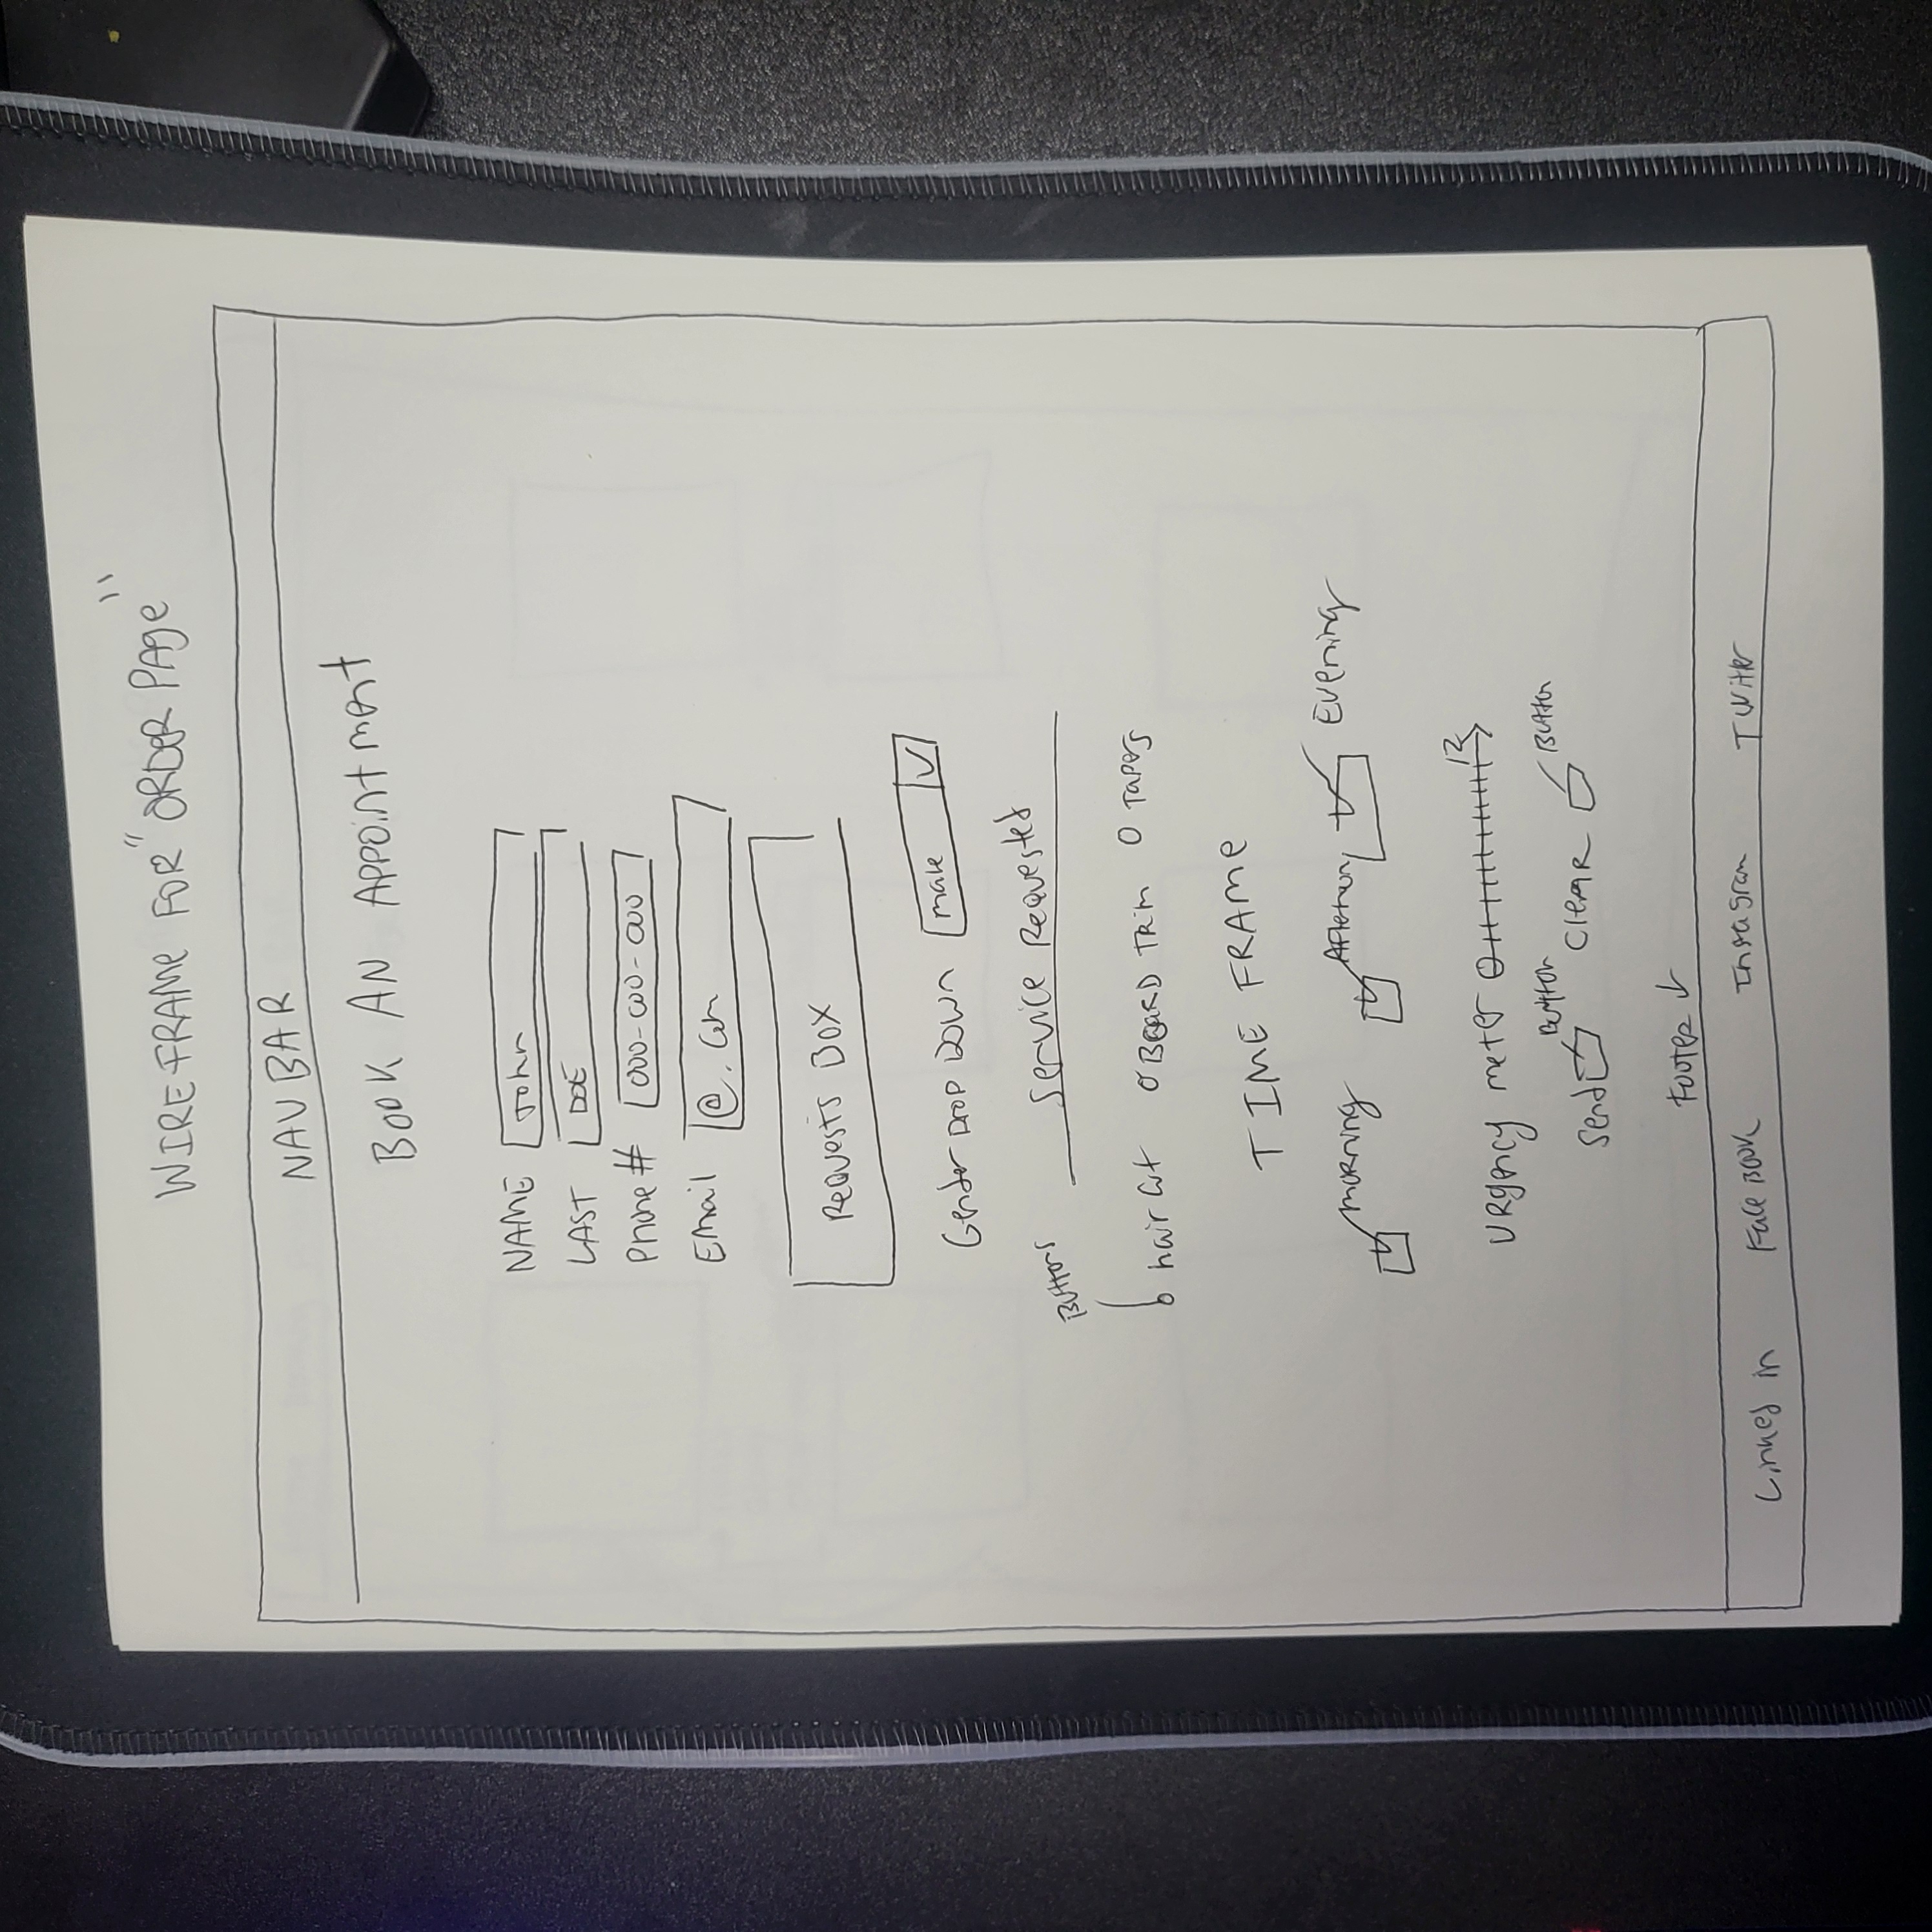 WIREFRAME FOR "ORDER PAGE"
NAV BAR
BOOK AN APPOINTMENT
NAME John
LAST DOE
Phone # 000-000-000
Email @.com
Requests Box
Gender DROP DOWN male
Service Requested
Buttons
hair cut BEARD TRIM TAPERS
TIME FRAME
MORNING Afternoon Evening
URgency meter 0 12
Send Button CLEAR Button
Footer ↓
Linked in Face Book Instagram Twitter